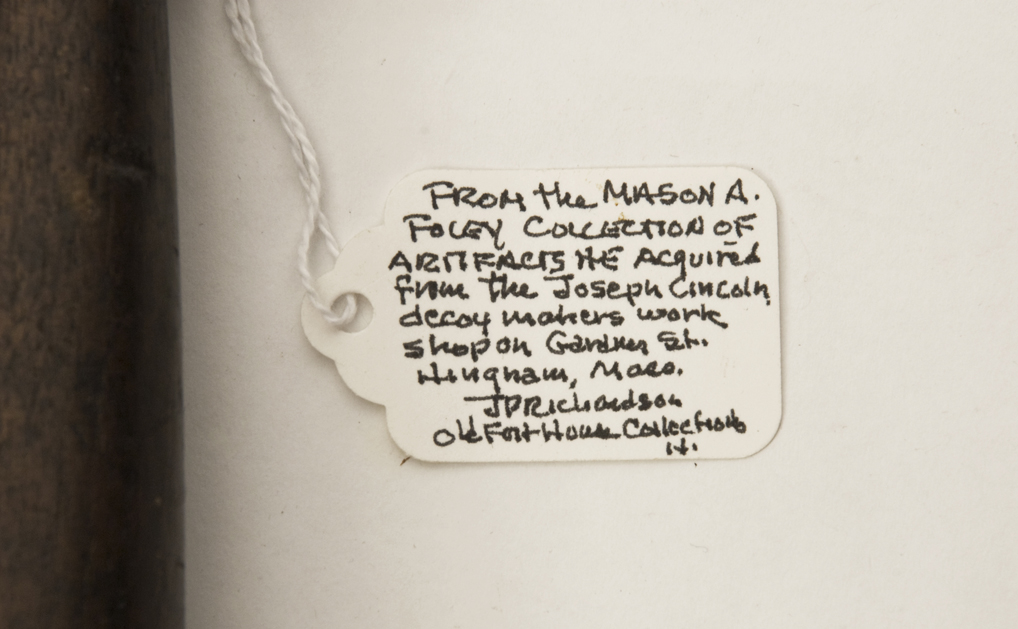 FROM the MASON A.
FOLEY COLLECTION OF
ARTIFACTS HE Acquired
from the Joseph Lincoln
decoy makers work
shop on Gardner St.
Hingham, Mass.
JPRichardson
Old Fort House Collections
H.